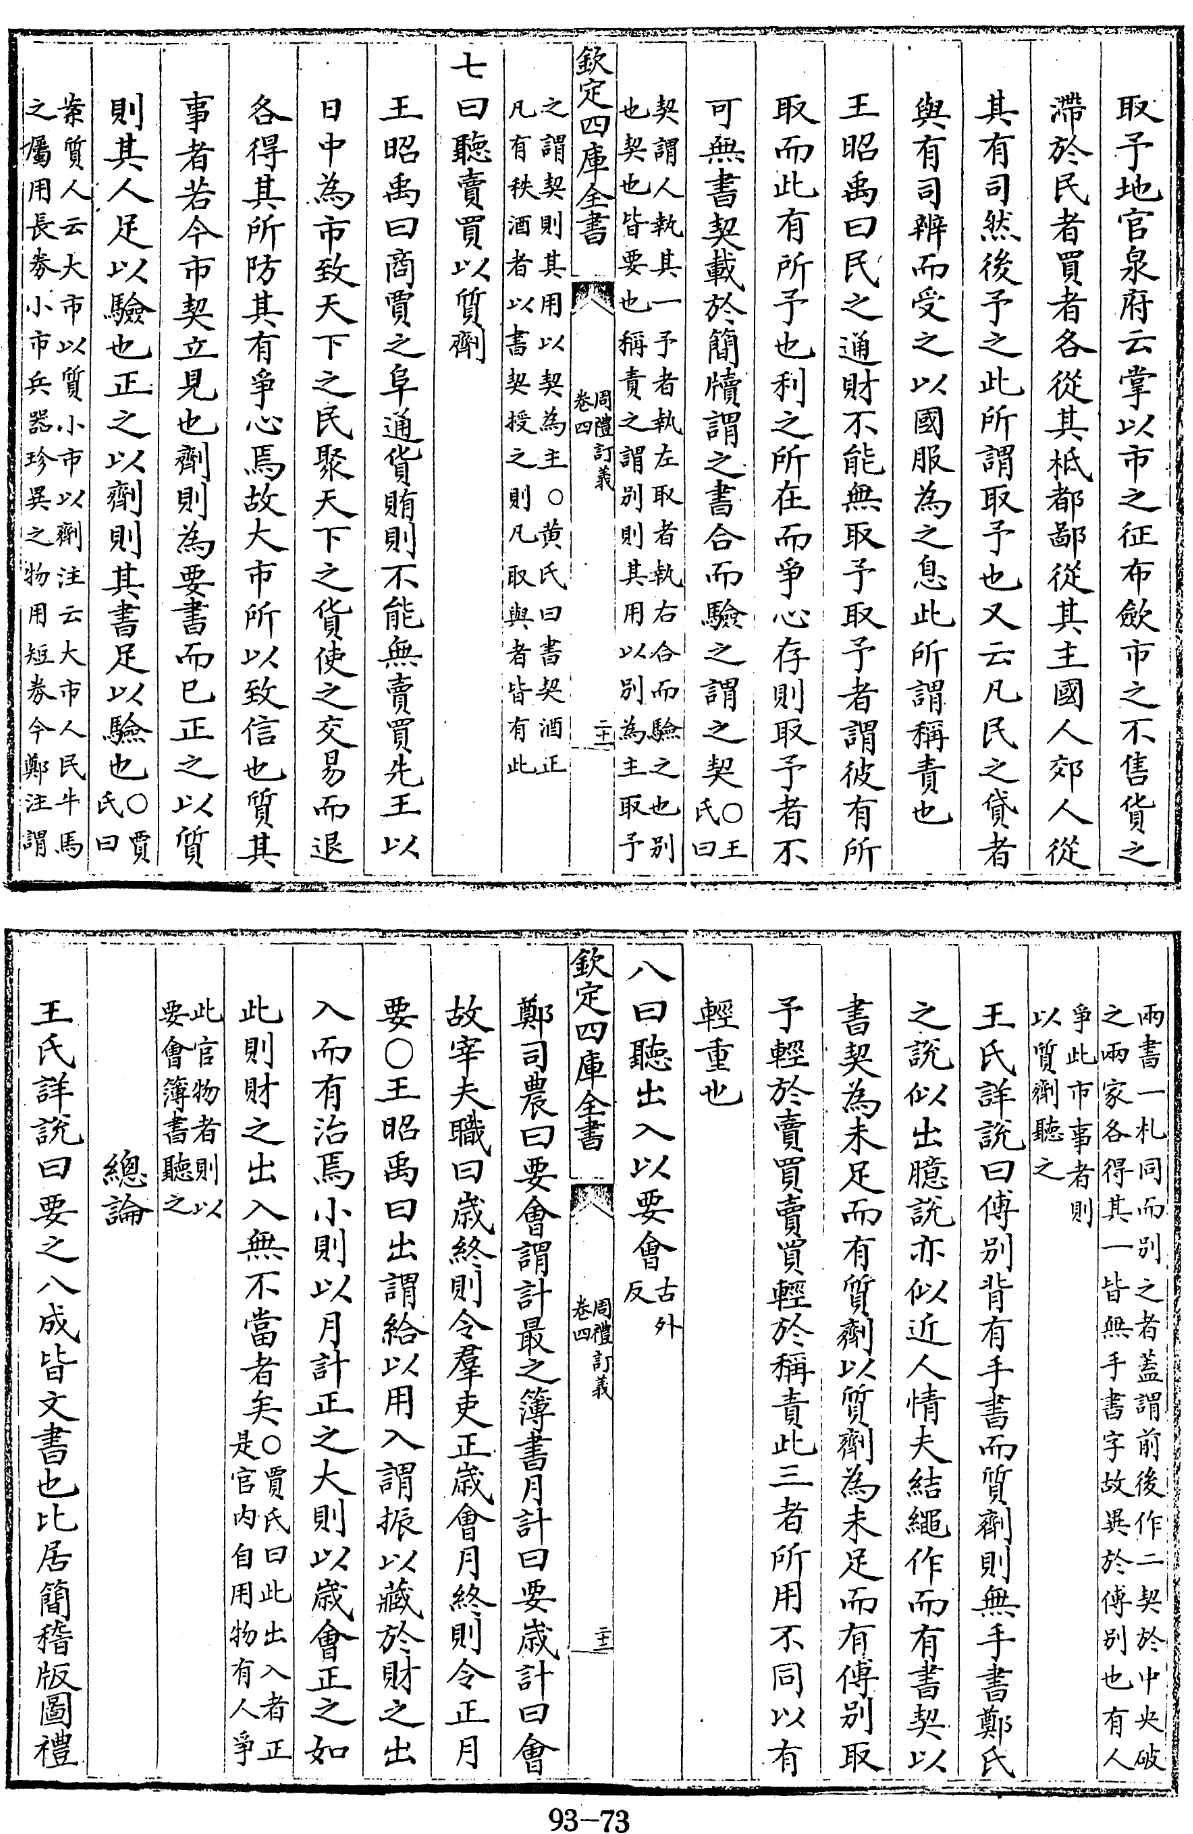 取予地官泉府云掌以市之征布斂市之不售貨之
滯於民者買者各從其柢都鄙從其主國人郊人從
其有司然後予之此所謂取予也又云凡民之貸者
與有司辨而受之以國服為之息此所謂稱責也
王昭禹曰民之通財不能無取予取予者謂彼有所
取而此有所予也利之所在而爭心存則取予者不
可無書契載於簡牘謂之書合而驗之謂之契○王氏曰
契謂人執其一予者執左取者執右合而驗之也別
也契也皆要也稱責之謂別則其用以別為主取予
欽定四庫全書
周禮訂義
卷四
二十
之謂契則其用以契為主○黃氏曰書契酒正
凡有秩酒者以書契授之則凡取與者皆有此
七曰聽賣買以質劑
王昭禹曰商賈之阜通貨賄則不能無賣買先王以
日中為市致天下之民聚天下之貨使之交易而退
各得其所防其有爭心焉故大市所以致信也質其
事者若今市契立見也劑則為要書而已正之以質
則其人足以驗也正之以劑則其書足以驗也○賈氏曰
案質人云大市以質小市以劑注云大市人民牛馬
之屬用長券小市兵器珍異之物用短券今鄭注謂
兩書一札同而別之者蓋謂前後作二契於中央破
之兩家各得其一皆無手書字故異於傅別也有人
爭此市事者則
以質劑聽之
王氏詳說曰傅別背有手書而質劑則無手書鄭氏
之說似出臆說亦似近人情夫結繩作而有書契以
書契為未足而有質劑以質劑為未足而有傅別取
予輕於賣買賣買輕於稱責此三者所用不同以有
輕重也
八曰聽出入以要會古外反
欽定四庫全書
周禮訂義
卷四
二十一
鄭司農曰要會謂計最之簿書月計曰要歲計曰會
故宰夫職曰歲終則令羣吏正歲會月終則令正月
要○王昭禹曰出謂給以用入謂振以藏於財之出
入而有治焉小則以月計正之大則以歲會正之如
此則財之出入無不當者矣○賈氏曰此出入者正
是官內自用物有人爭
此官物者則以
要會簿書聽之
總論
王氏詳說曰要之八成皆文書也比居簡稽版圖禮
93-73